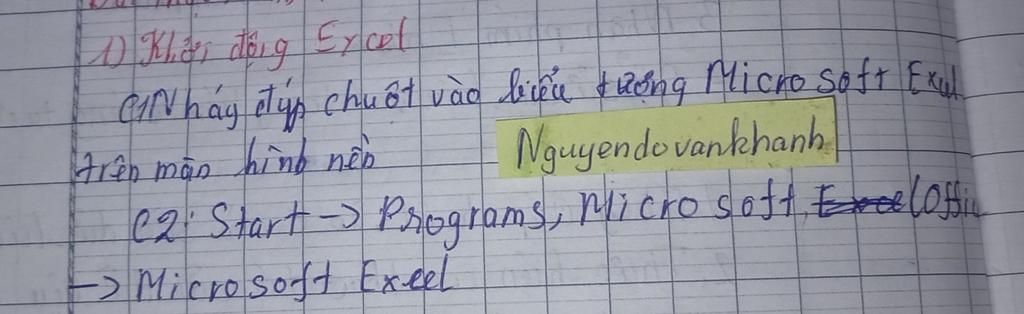 1) Khởi động Excel
C1 Nháy đúp chuột vào biểu tượng Microsoft Excel
trên màn hình nền
Nguyendovankhanh
C2: Start -> Programs, Microsoft, Excel Offic
-> Microsoft Excel